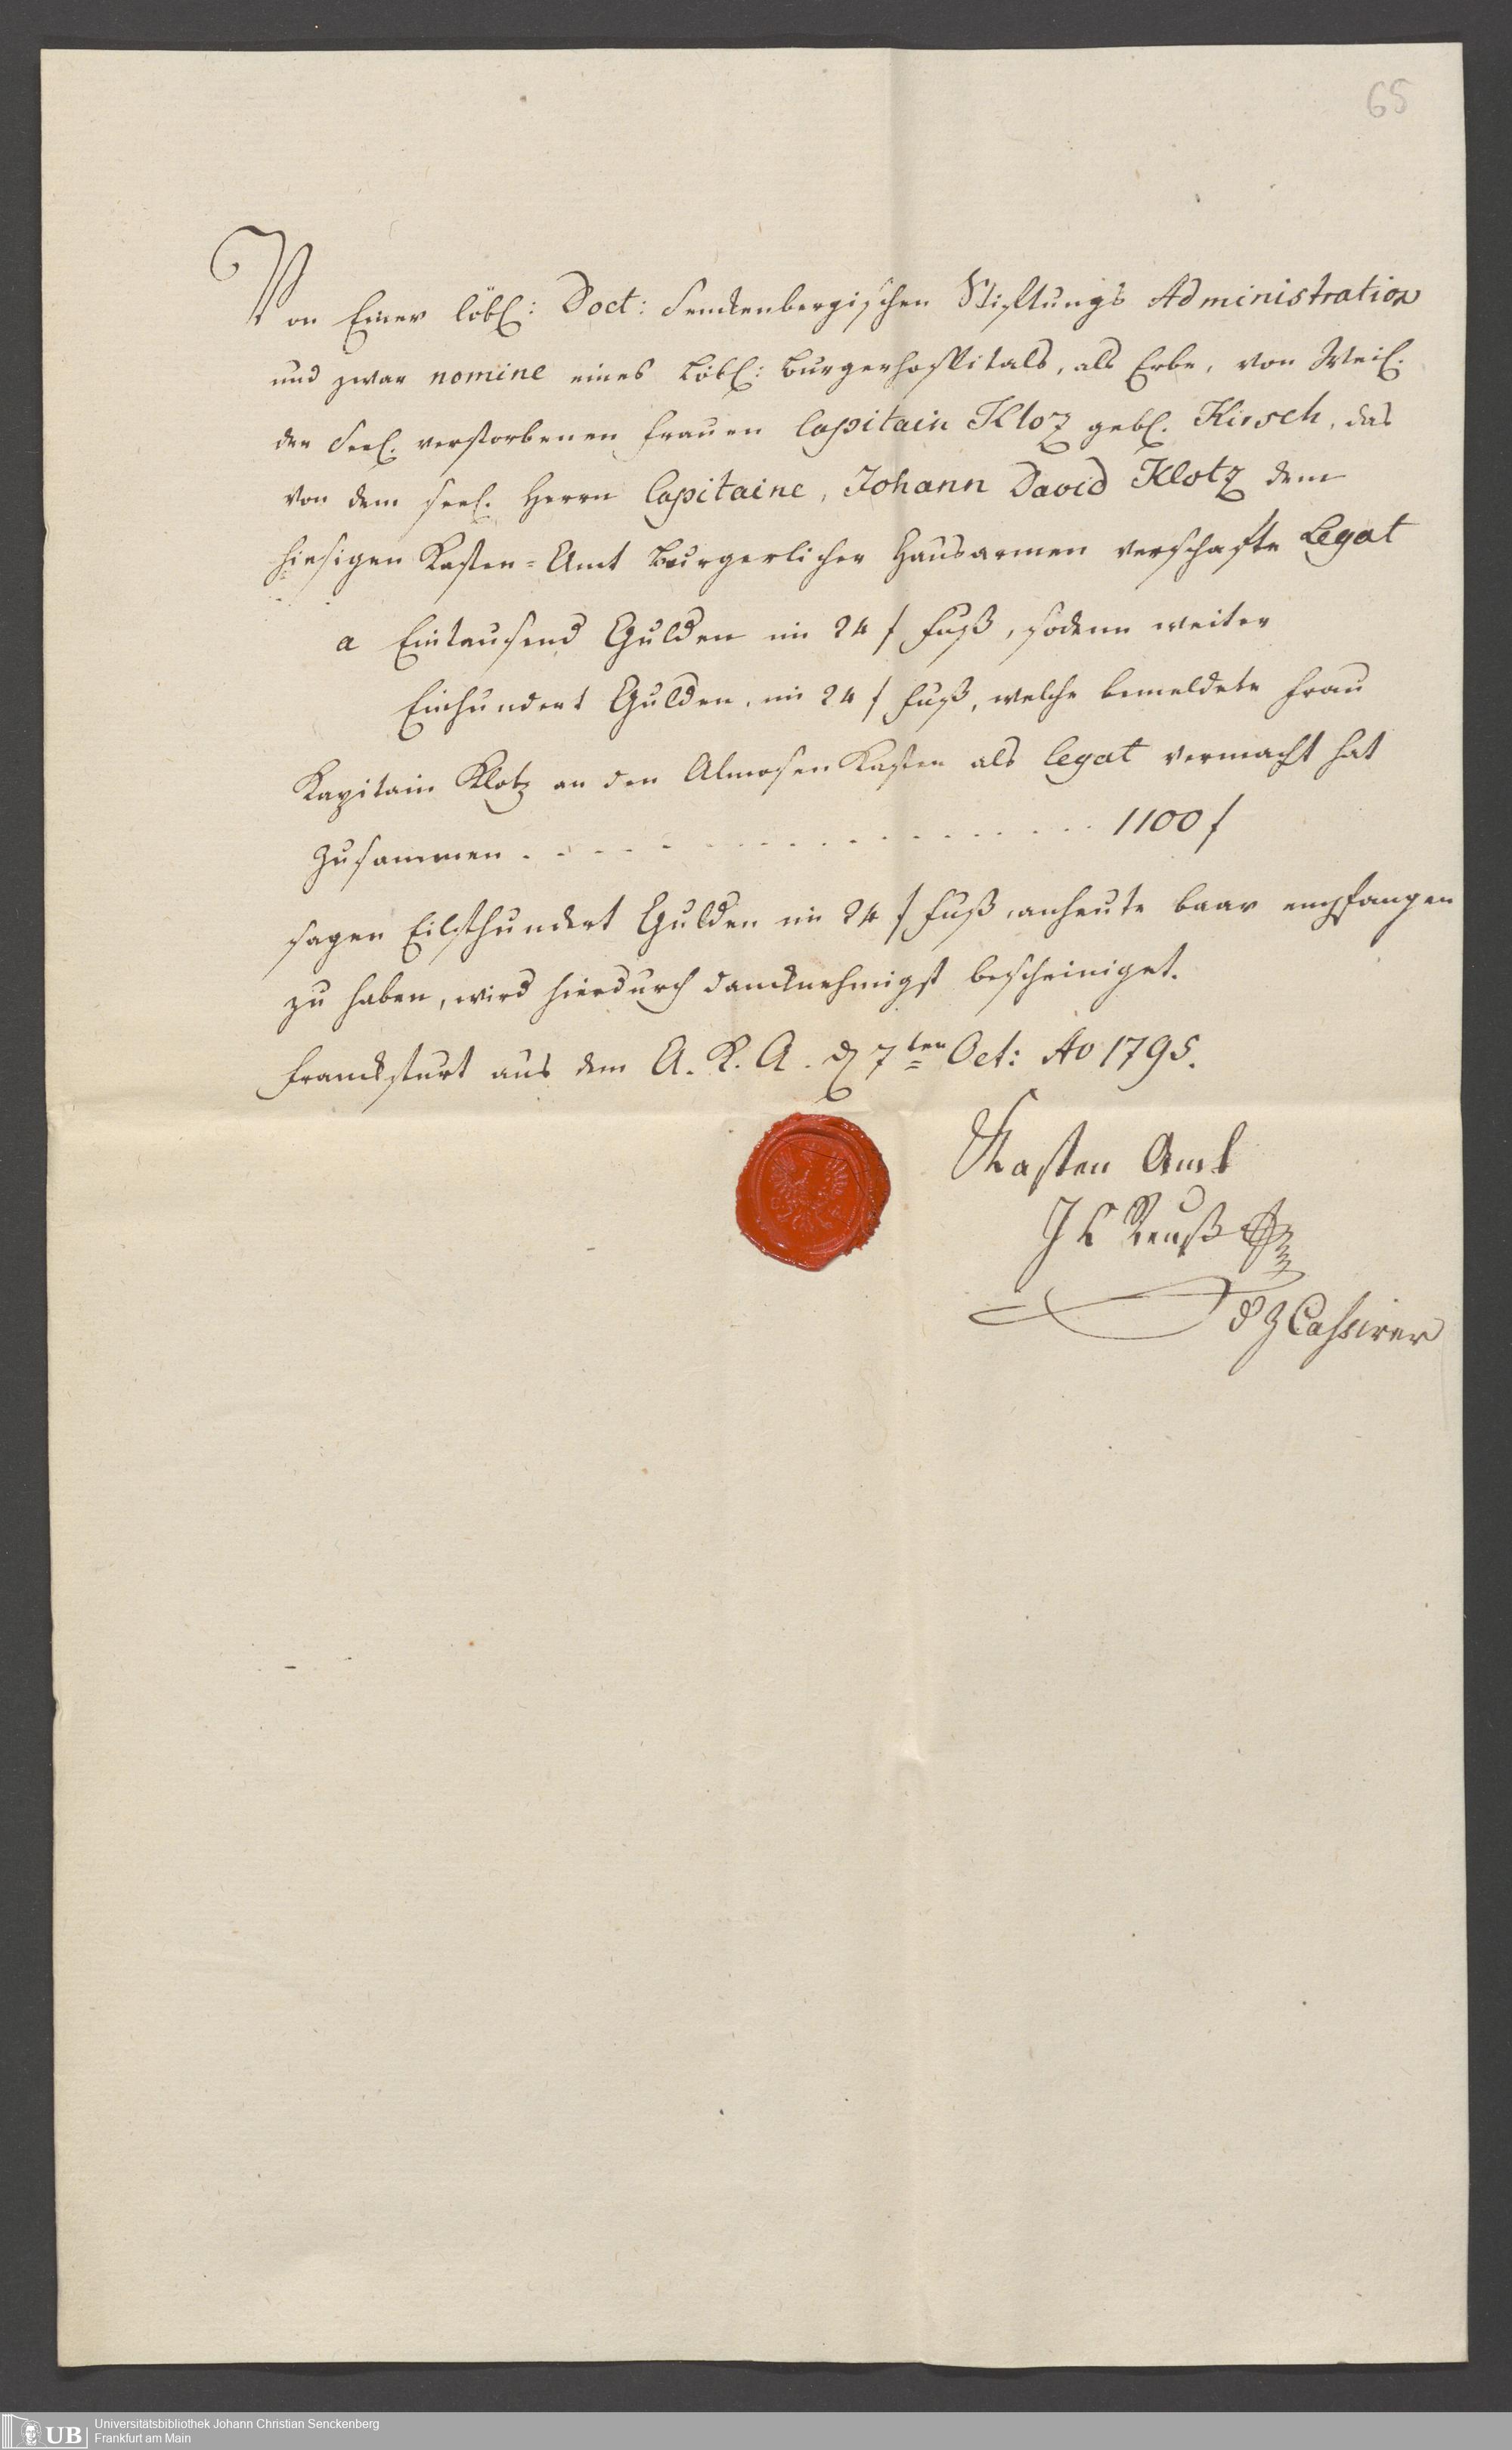 65
Von Einer löbl: Doct: Senckenbergischen Stiftungs Administration
und zwar nomine eines Löbl: Burgerhospitals, als Erbe, von Weil.
der Seel. verstorbenen Frauen Capitain Kloz gebl. Hirsch, das
von dem seel. Herrn Capitaine, Johann David Klotz dem
hiesigen Kasten=Amt Burgerlicher Hausarmen verschafte Legat
a Eintausend Gulden im 24 f Fuß, sodenn weiter
Einhundert Gulden, im 24 f Fuß, welche bemeldete Frau
Kapitain Klotz an den Almosen Kasten als legat vermacht hat
Zusammen . . . . . . . . . . . . . . . . . 1100 f
sagen Eilfhundert Gulden im 24 f Fuß, anheute baar empfangen
zu haben, wird hierdurch dancknehmigst bescheiniget.
Franckfurt aus dem A. K. A. d 7ten Oct: Ao 1795.
Kasten Amt
J C Reuß
d Z Cassirer
UB Universitätsbibliothek Johann Christian Senckenberg
Frankfurt am Main